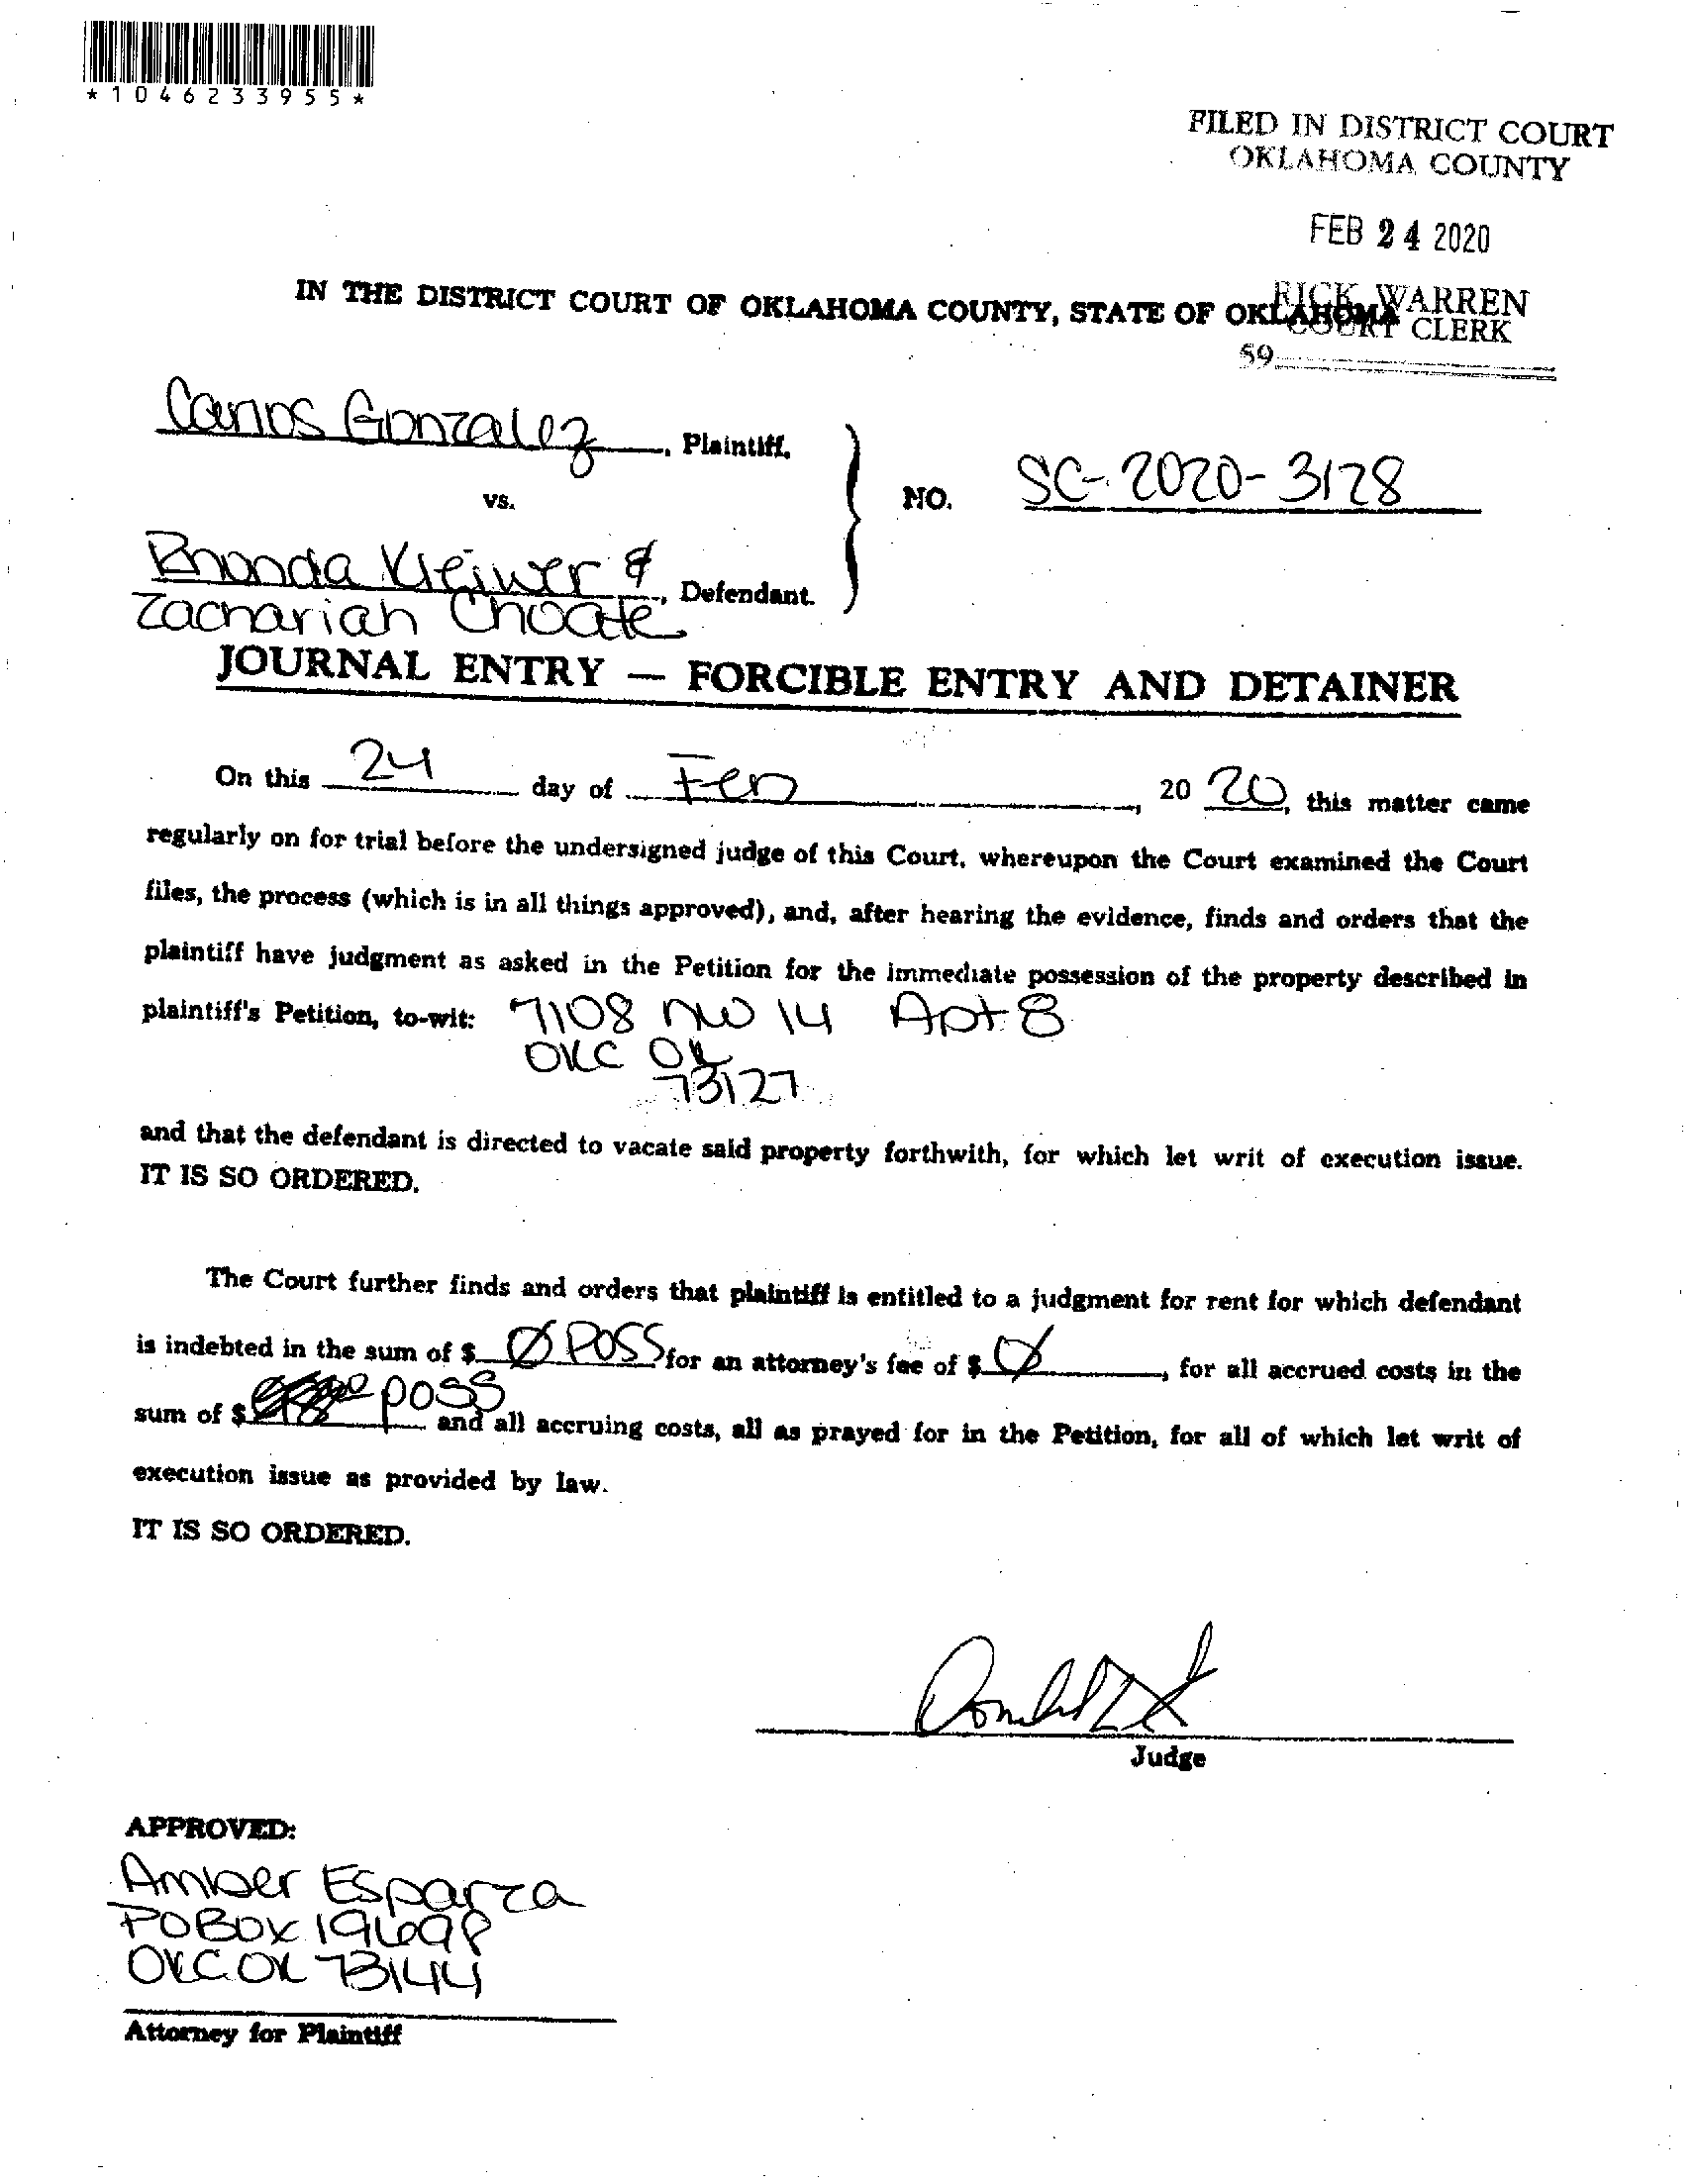 *1046233955*
FILED IN DISTRICT COURT
OKLAHOMA COUNTY
FEB 24 2020
RICK WARREN
COURT CLERK
59
IN THE DISTRICT COURT OF OKLAHOMA COUNTY, STATE OF OKLAHOMA
Carlos Gonzalez, Plaintiff,
vs.
NO. SC-2020-3128
Rhonda Kleiwer &, Defendant.
Zachariah Choate
JOURNAL ENTRY — FORCIBLE ENTRY AND DETAINER
On this 24 day of Feb, 20 20, this matter came
regularly on for trial before the undersigned judge of this Court, whereupon the Court examined the Court
files, the process (which is in all things approved), and, after hearing the evidence, finds and orders that the
plaintiff have judgment as asked in the Petition for the immediate possession of the property described in
plaintiff's Petition, to-wit: 7108 NW 14 Apt 8
OKC OK
73127
and that the defendant is directed to vacate said property forthwith, for which let writ of execution issue.
IT IS SO ORDERED.
The Court further finds and orders that plaintiff is entitled to a judgment for rent for which defendant
is indebted in the sum of $ Ø POSS for an attorney's fee of $ Ø, for all accrued costs in the
sum of $ poss and all accruing costs, all as prayed for in the Petition, for all of which let writ of
execution issue as provided by law.
IT IS SO ORDERED.
Judge
APPROVED:
Amber Esparza
PO BOX 19698
OKC OK 73144
Attorney for Plaintiff